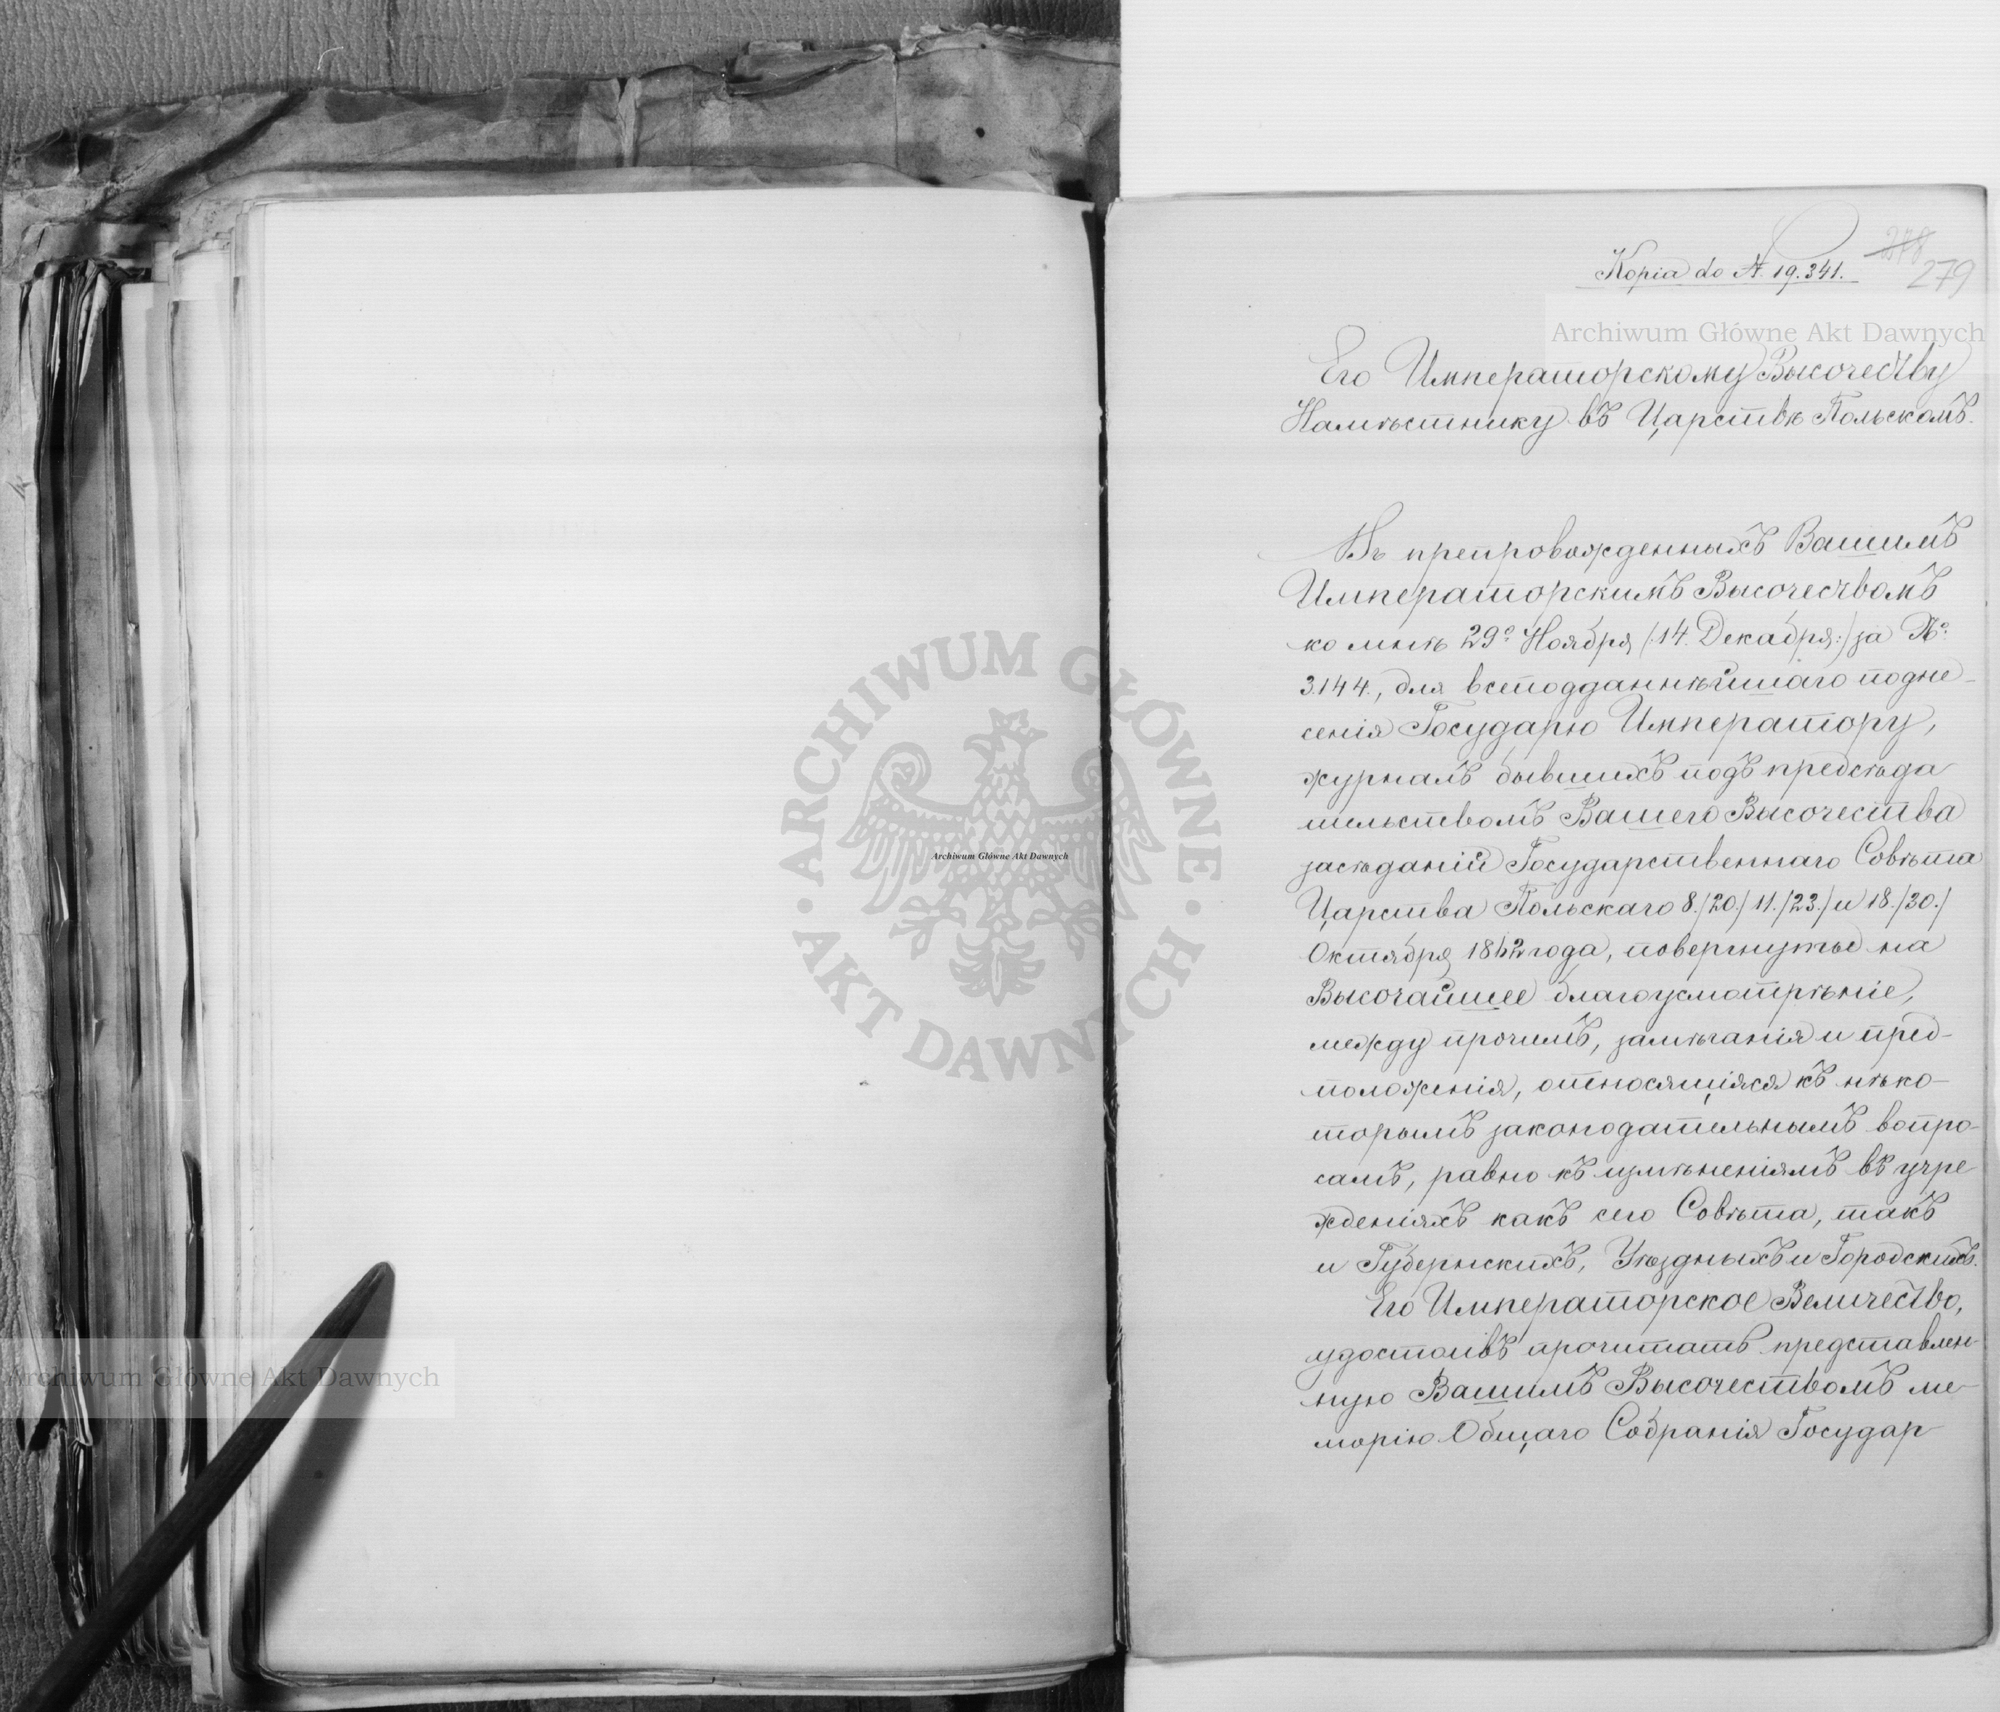 Kopia do N. 19.341.
278
279
Archiwum Główne Akt Dawnych
Его Императорскому Высочеству
Намѣстнику въ Царствѣ Польскомъ.
Въ препровожденныхъ Вашимъ
Императорскимъ Высочествомъ
ко мнѣ 29º Ноября /:14. Декабря:/ за Nº
3144., для всеподданнѣйшаго подне-
сенія Государю Императору,
журналъ бывшихъ подъ предсѣда
тельствомъ Вашего Высочества
засѣданій Государственнаго Совѣта
Царства Польскаго 8./20./ 11./23./ и 18./30./
Октября 1862 года, повергнуты на
Высочайшее благоусмотрѣніе,
между прочимъ, замѣчанія и пред-
положенія, относящіяся къ нѣко-
торымъ законодательнымъ вопро-
самъ, равно къ измѣненіямъ въ учре
жденіяхъ какъ сего Совѣта, такъ
и Губернскихъ, Уѣздныхъ и Городскихъ.
Его Императорское Величество,
удостоивъ прочитать представлен-
ную Вашимъ Высочествомъ ме-
морію Общаго Собранія Государ
ARCHIWUM GŁÓWNE
AKT DAWNYCH
Archiwum Główne Akt Dawnych
Archiwum Główne Akt Dawnych